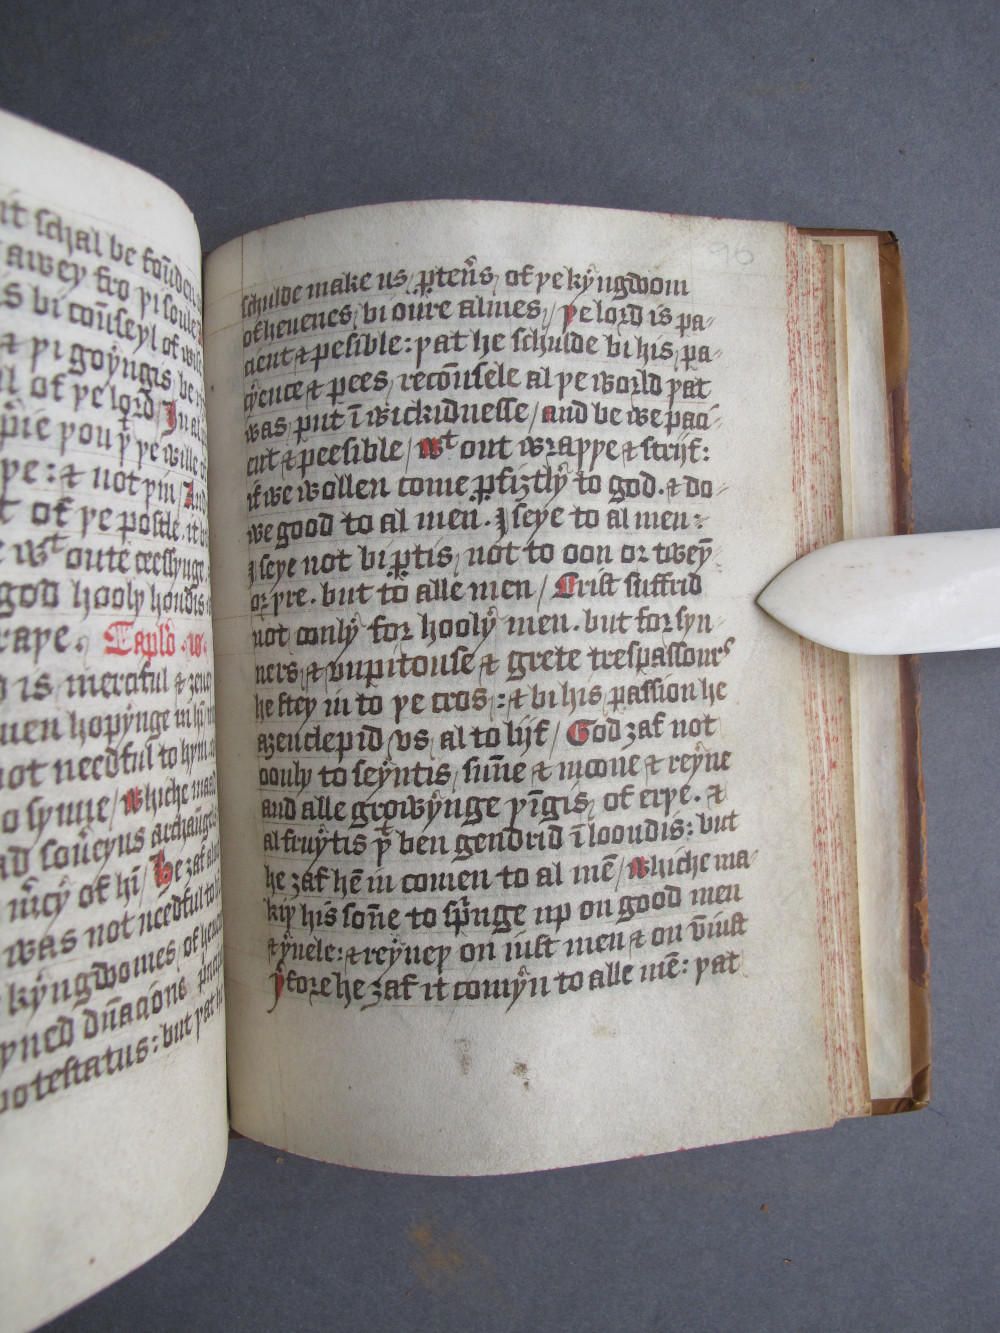 it schal be foūden
awey fro yi soule
s bi coūseyl of wise
⁊ yi goẏngis be
l of ye lord / In al
pie you yͭ ye wille of
ye : ⁊ not yin / And
t of ye postle . it
e wͭ oute ceessynge
god hooly hondis
raye . Capło . io .
is merciful ⁊
uen hopẏnge in hī
not needful to hym
o synne / Whiche
ad soūeyns archaūgel
mͬcy of hī / he ȝaf
was not needful to
kẏngdomes , of heuen
yned dn̄acions
potestatus : but yat
96
schulde make us , ꝑtenͬs , of ye kẏngdoom
of heuenes , bi oure almes / ye lord is pa-
cient ⁊ pesible : yat he schulde bi his , pa-
cẏence ⁊ pees , recoūsele al ye world yat
was , put ī wickidnesse / and be we paci-
ent ⁊ peesible / Wͭ out wrayye ⁊ strijf :
if we wollen come ꝑfiztlẏ to god . ⁊ do-
we good to al men . I seye to al men :
I seye not bi ꝑtis , not to oon or tweẏ-
or yre . but to alle men / Crist suffrid
not oonlẏ for hoolẏ men . but for syn-
ners , ⁊ vnpitouse ⁊ grete trespassours
he stey in to ye cros , : ⁊ bi his passion he
aȝenclepid , vs , al to lijf / God ȝaf not
oonly to seẏntis , sūne ⁊ moone ⁊ reẏne
and alle growẏnge yīgis , of erye . ⁊
al fruẏtis yͭ ben gendrid ī loondis : but
he ȝaf hē in comen to al mē / Whiche ma-
kiy his soñe to sprͥnge up on good men
⁊ ẏuele : ⁊ reẏney on iust men ⁊ on vniust
yͬfore he ȝaf it comẏn to alle mē : yat